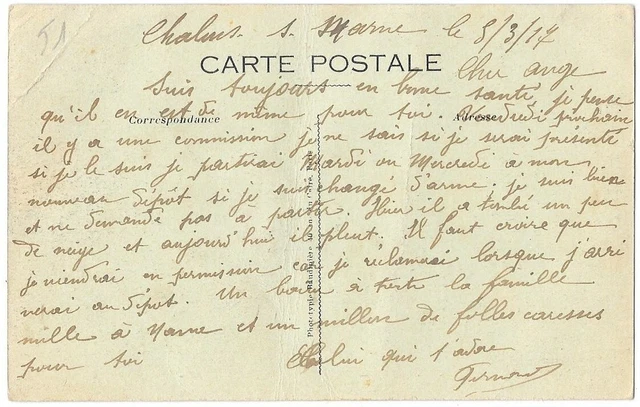 51
Chalons s. Marne le 8/3/17
CARTE POSTALE
Cher ange
Suis toujours en bonne santé, je pense
qu'il en est de même pour toi. prochaine
Correspondance
Adresse
il y a une commission je ne sais si je serai présenté
si je le suis je partirai Mardi ou Mercredi a mon
nouveau dépôt si je suis changé d'arme. je suis bien
et ne demande pas à partir. Hier il a tombé un peu
de neige et aujourd'hui il pleut. Il faut croire que
je viendrai en permission car je réclamerai lorsque j'arri
verai au dépôt. Un à toute la famille
mille à et un million de folles caresses
pour toi
Celui qui t'adore